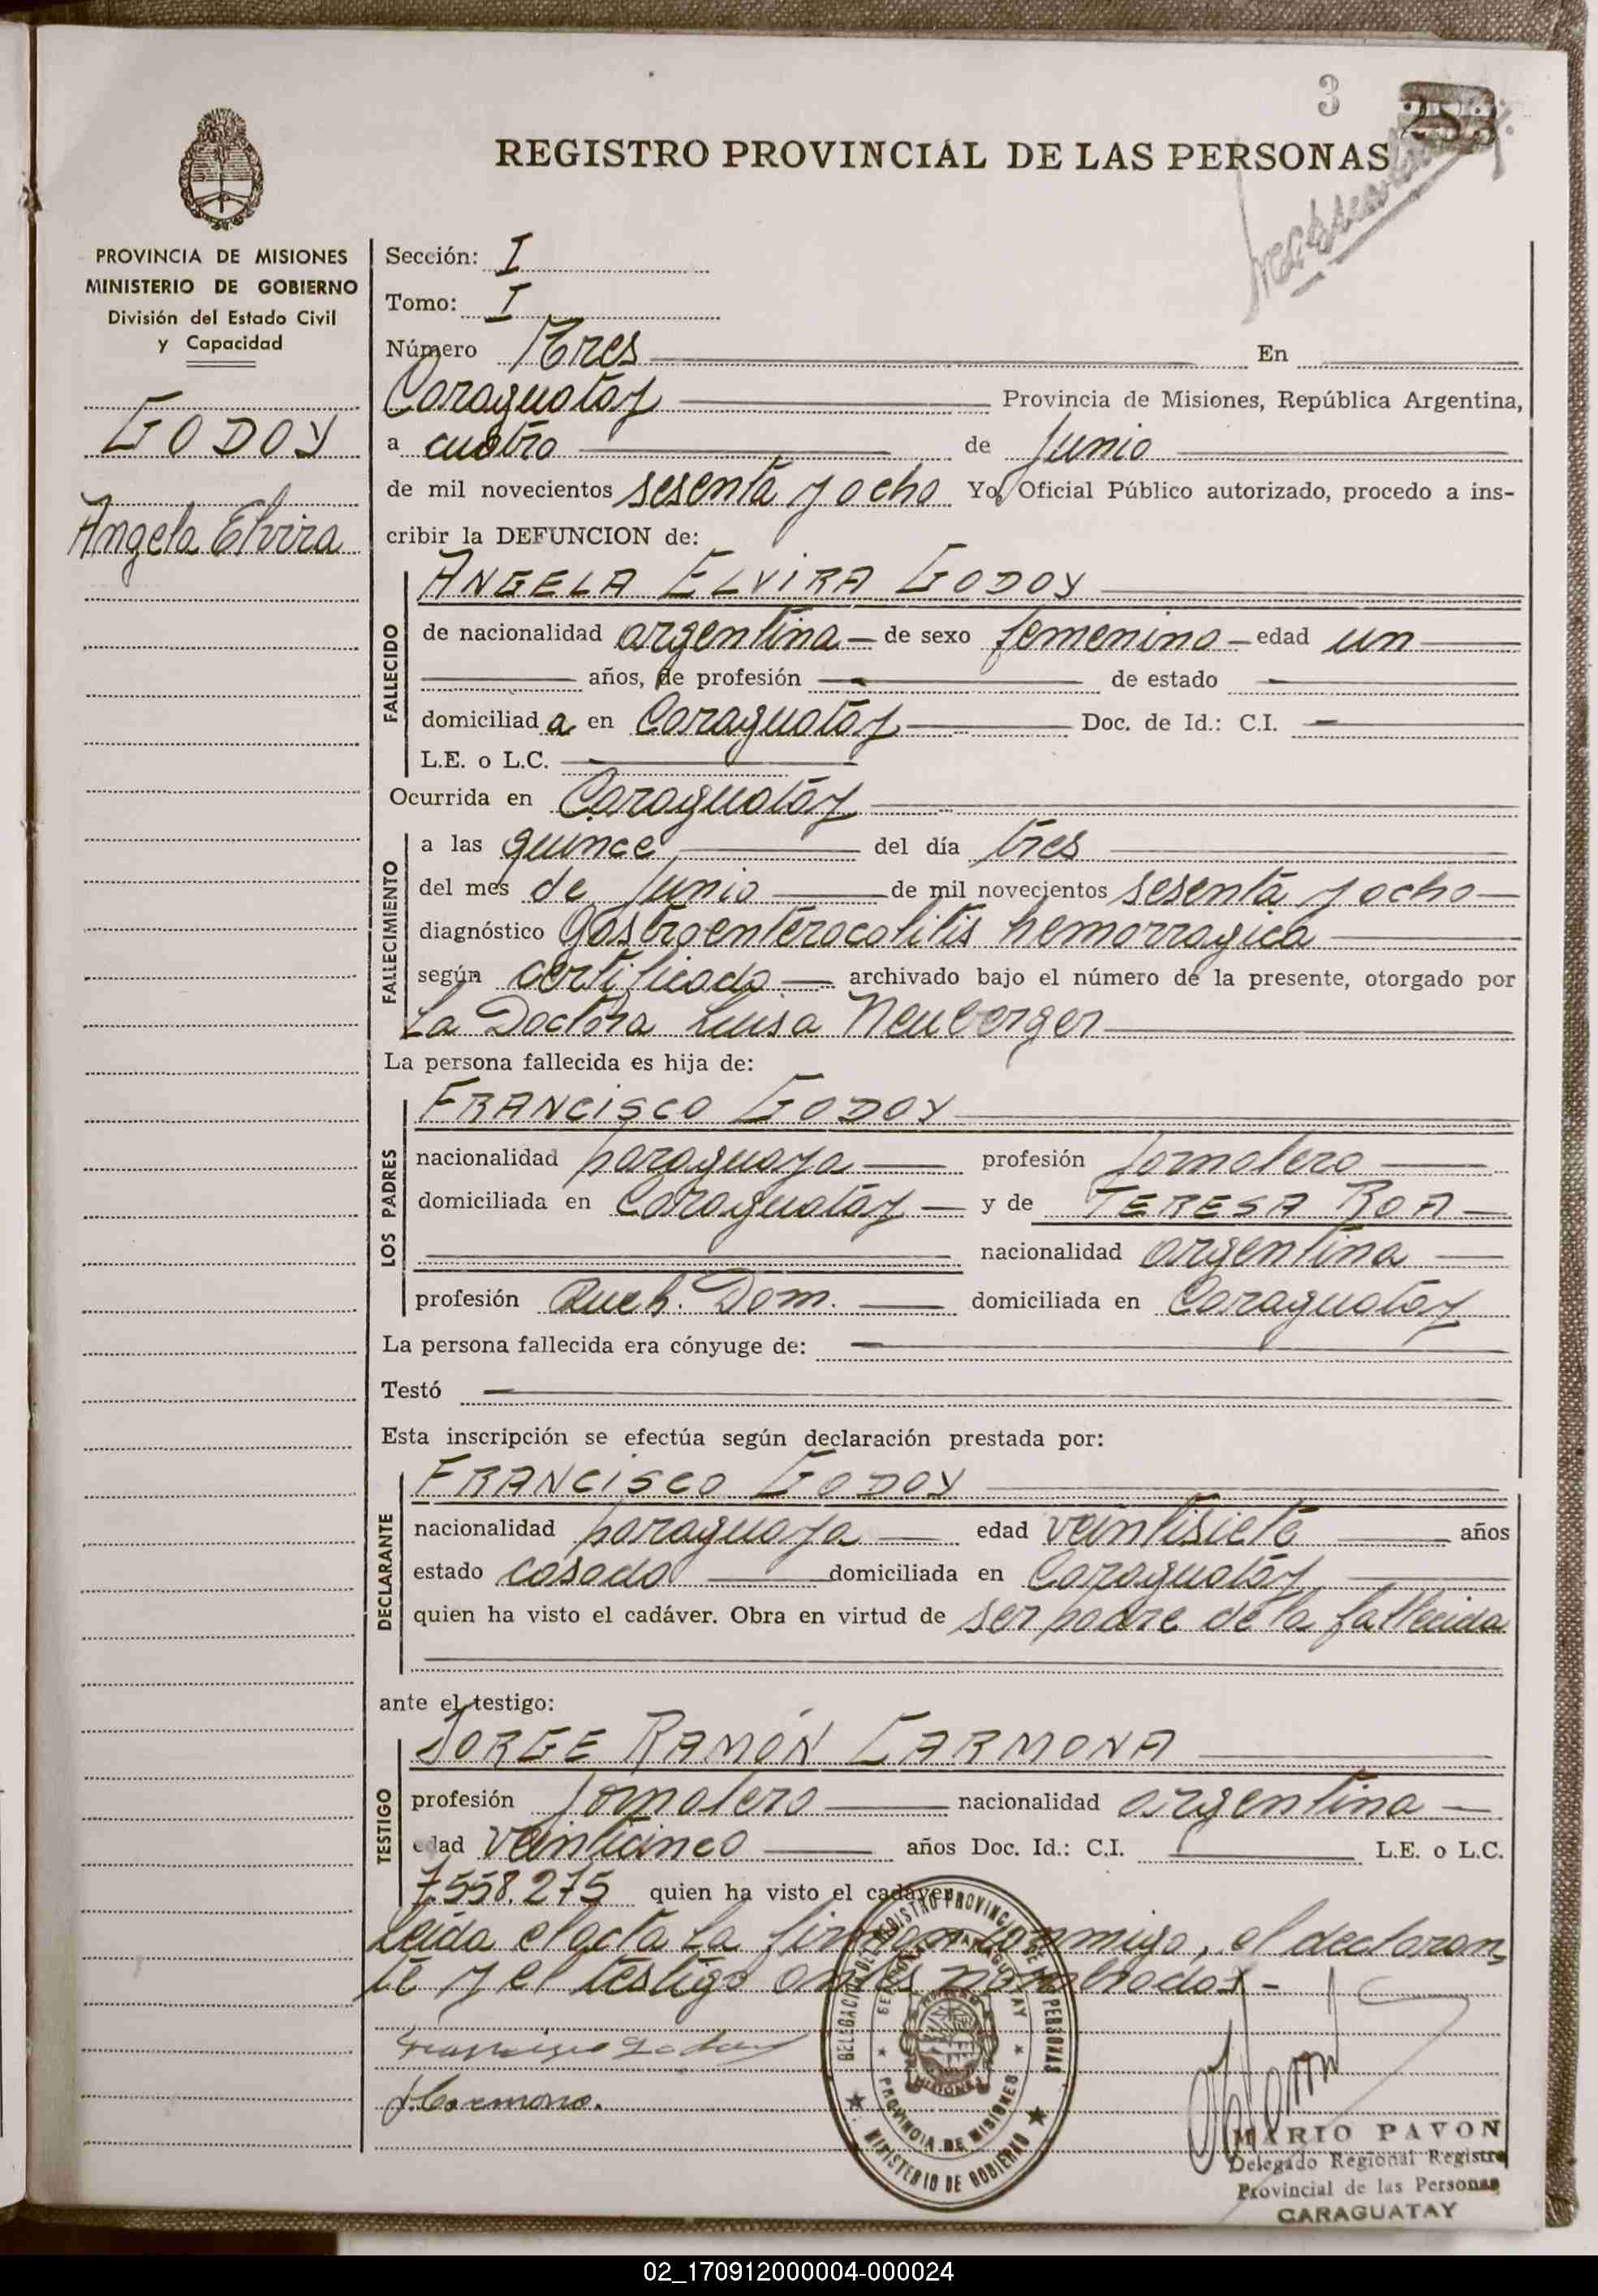 3
REGISTRO PROVINCIAL DE LAS PERSONAS
PROVINCIA DE MISIONES
MINISTERIO DE GOBIERNO
División del Estado Civil
y Capacidad
GODOY
Angela Elvira
Sección: I
Tomo: I
Número Tres En
Caraguatay Provincia de Misiones, República Argentina,
a cuatro de Junio
de mil novecientos sesenta y ocho Yo, Oficial Público autorizado, procedo a ins-
cribir la DEFUNCION de:
FALLECIDO
ANGELA ELVIRA GODOY
de nacionalidad argentina — de sexo femenino — edad un
años, de profesión — de estado —
domiciliad a en Caraguatay Doc. de Id.: C.I. —
L.E. o L.C. —
Ocurrida en Caraguatay
FALLECIMIENTO
a las quince del día tres
del mes de Junio de mil novecientos sesenta y ocho —
diagnóstico Gastroenterocolitis hemorragica
según certificado — archivado bajo el número de la presente, otorgado por
La Doctora Luisa Neuberger
La persona fallecida es hija de:
LOS PADRES
FRANCISCO GODOY
nacionalidad paraguaya — profesión Jornalero —
domiciliada en Caraguatay — y de TERESA ROA —
nacionalidad argentina —
profesión Queh. Dom. — domiciliada en Caraguatay
La persona fallecida era cónyuge de: —
Testó —
Esta inscripción se efectúa según declaración prestada por:
DECLARANTE
FRANCISCO GODOY
nacionalidad paraguaya — edad veintisiete años
estado casado domiciliada en Caraguatay
quien ha visto el cadáver. Obra en virtud de ser padre de la fallecida
ante el testigo:
TESTIGO
JORGE RAMÓN CARMONA
profesión Jornalero nacionalidad argentina —
edad veinticinco años Doc. Id.: C.I. — L.E. o L.C.
7.558.275 quien ha visto el cadáver
Leida el acta la firman conmigo, el declaran
te y el testigo antes nombrados -
Francisco Godoy
J. Carmona.
DELEGACION DEL REGISTRO PROVINCIAL DE LAS PERSONAS
SECCIONAL CARAGUATAY
MISIONES
PROVINCIA DE MISIONES
MINISTERIO DE GOBIERNO
MARIO PAVON
Delegado Regional Registro
Provincial de las Personas
CARAGUATAY
02_170912000004-000024